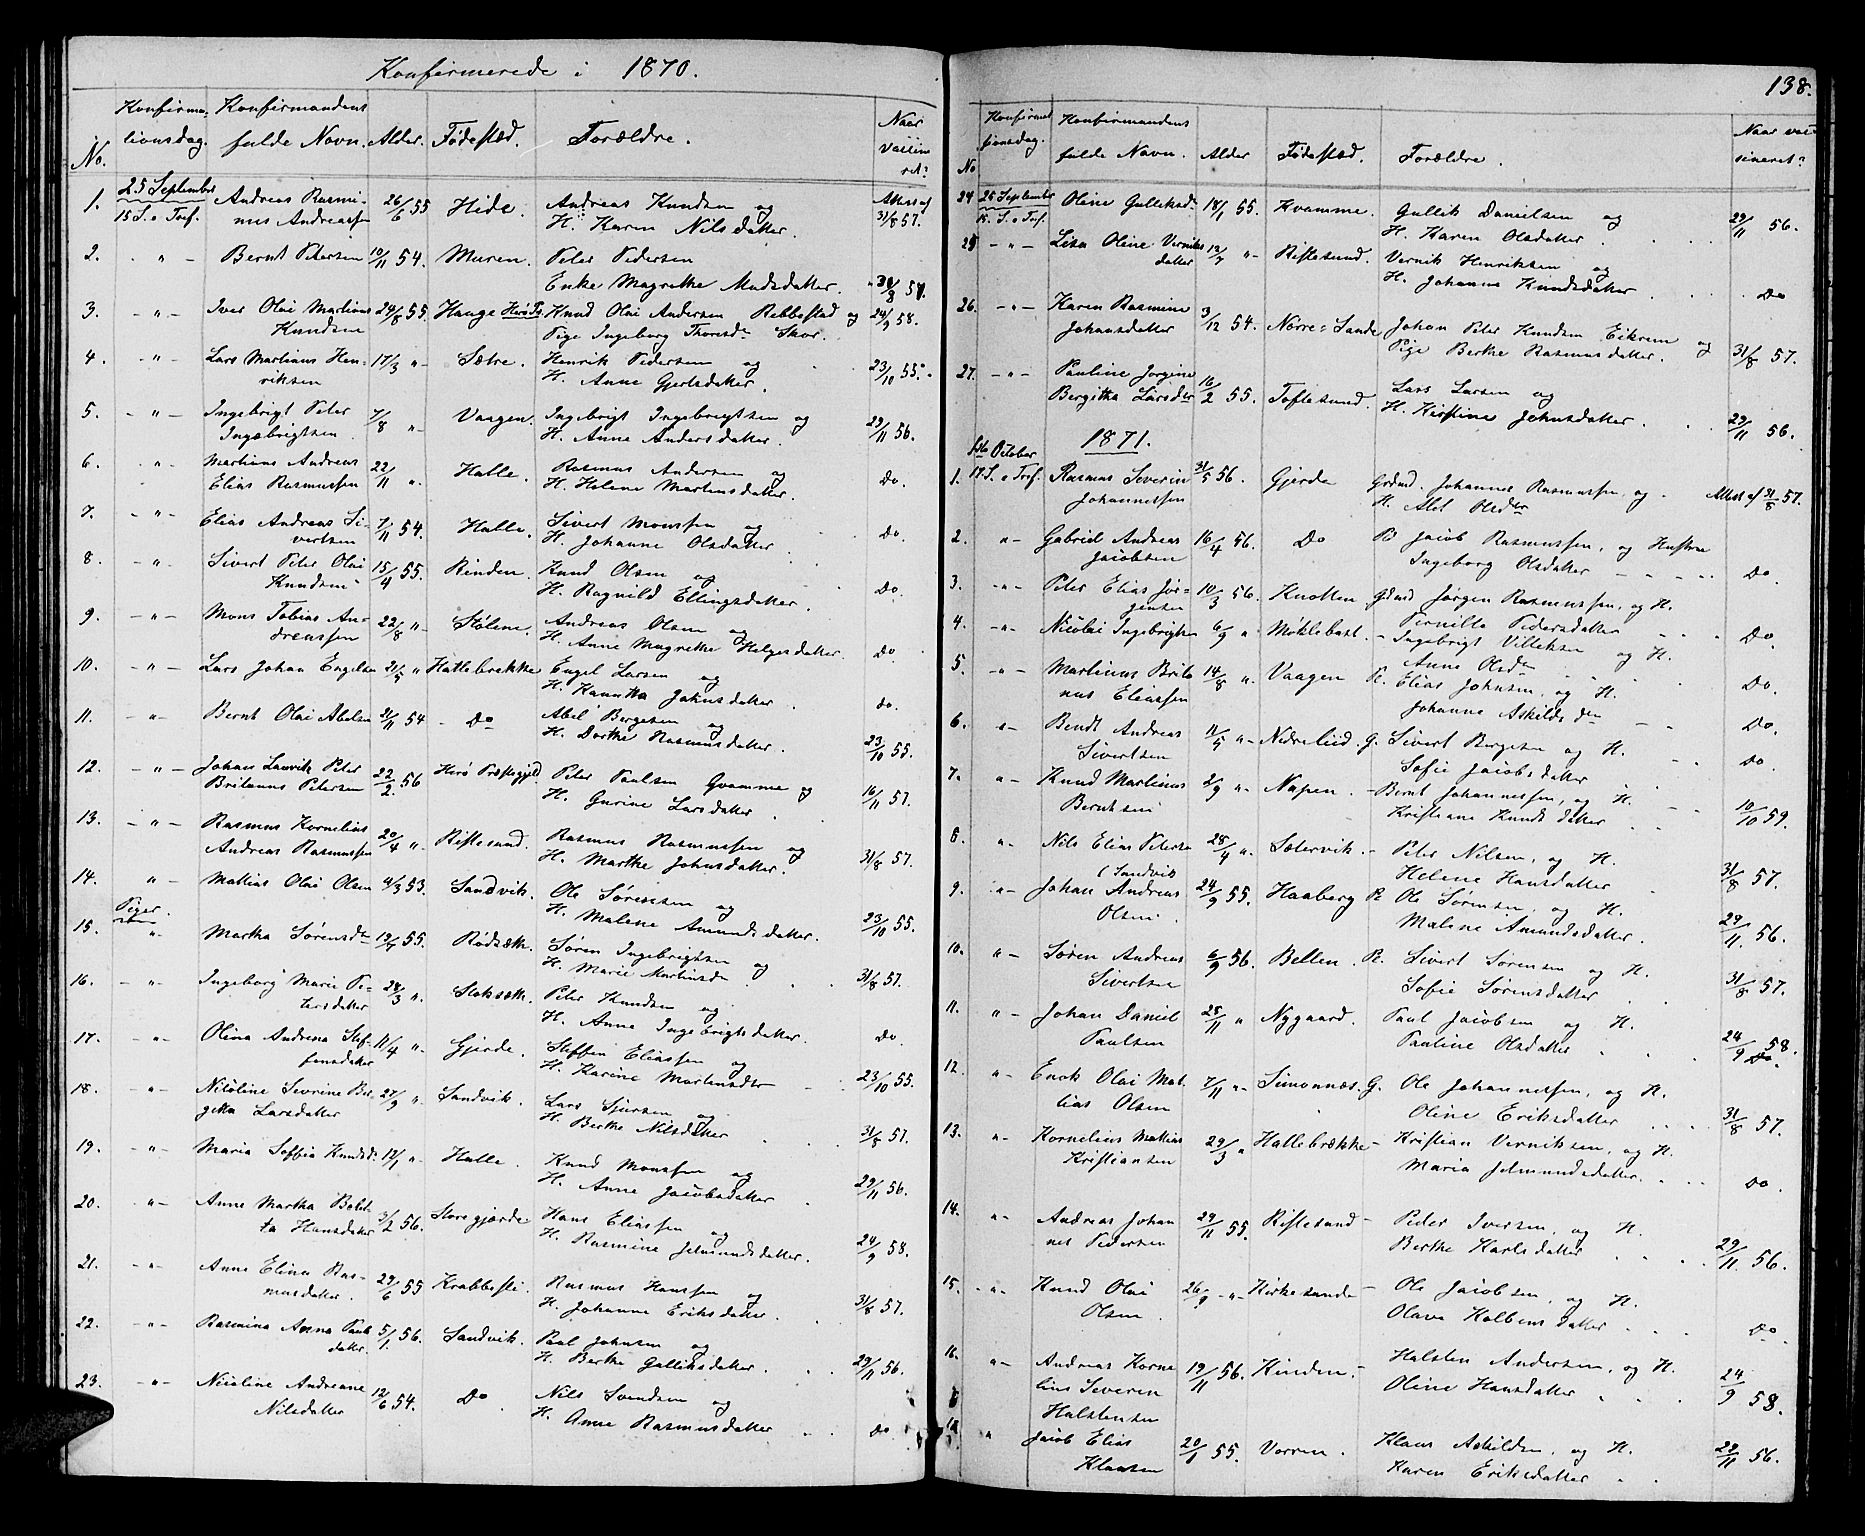 Konfirmerede i 1870.
No. Konfirma- tionsdag. Konfirmandens fulde Navn. Alder. Fødested. Forældre. Naar vaccineret?
1. 25 September 15 S. e Tref. Andreas Rasmi- 26/6 55 Hide. Andreas Knudsen og Attest af
nus Andreassen H. Karen Nilsdatter. 31/8 57.
2. " - Bernt Petersen 10/11 54. Muren. Peter Pedersen
Enke Magrethe Madsdatter. 31/8 57.
3. - " - Iver Olai Martinus 24/8 55. Hauge Herø Knud Olai Andersen Rebbestad og 24/9 58.
Knudsen Pige Ingeborg Thorsdr Skor.
4. - " Lars Martinus Hen- 17/3 " Sætre. Henrik Pedersen og 23/10 55.
riksen H. Anne Gjertsdatter.
5. - " - Ingebrigt Peter 7/8 " Vaagen. Ingebrigt Ingebrigtsen og 29/11 56.
Ingebrigtsen. H. Anne Andersdatter.
6. " Martinus Andreas 22/11 " Halle. Rasmus Andersen og Do.
Elias Rasmussen H. Helene Martinsdatter.
7. - " - Elias Andreas Si- 7/11 54. Halle. Sivert Monssen og Do.
vertsen H. Johanne Olsdatter
8. " Sivert Peter Olai 15/4 55. Rinden. Knud Olsen og Do.
Knudsen H. Ragnild Ellingsdatter.
9. - " - Mons Tobias An- 22/8 " Stølene. Andreas Olsen og Do.
dreassen H. Anne Magrethe Helgesdatter.
10. - " - Lars Johan Engelsen 21/5 " Hatlebrække Engel Larsen og Do.
H. Kanutta Jakusdatter
11. - " - Bernt Olai Abelsen 21/11 54 - Do Abel Bergesen og 23/10 55.
H. Dorthe Rasmusdatter.
12. - " - Johan Lauritz Peter 22/2 56 Herø Præstegjeld. Peter Paulsen Qvamme og 16/11 57.
Britanus Petersen H. Gurine Larsdatter
13. - " - Rasmus Kornelius 20/4 " Riflesund. Rasmus Rasmussen og 31/8 57.
Andreas Rasmussen H. Marthe Johnsdatter.
14. " Mathias Olai Olsen 4/3 53. Sandvik. Ole Sørensen og 23/10 55.
H. Malene Amundsdatter.
Piger.
15. " Martha Sørensdr 19/5 55. Rødsæth. Søren Ingebrigtsen og 31/8 57.
H. Marie Martinsdr
16. - " - Ingeborg Marie Pe- 24/3 ". Stoksæth. Peter Knudsen og Do.
tersdatter H. Anne Ingebrigtsdatter.
17. - " - Olina Andrena Stef- 11/4 " Gjerde. Steffen Eliassen og 23/10 55.
fensdatter H. Karine Martensdtr
18. - " - Nikoline Severine Bri- 27/9 ". Sandvik. Lars Sjursen og 31/8 57.
gitta Larsdatter H. Berthe Nilsdatter
19. - " - Maria Soffia Knudsd. 12/1 " Halle. Knud Monssen og 29/11 56.
H. Anne Jacobsdatter
20. " - Anne Martha Bolet- 3/2 56. Storegjærde Hans Eliassen og 24/9 58.
ta Hansdatter H. Rasmine Jetmundsdatter.
21. - " - Anne Elina Ras- 29/6 55 Krabbesti. Rasmus Hanssen og 31/8 57.
musdatter. H. Johanne Eriksdatter.
22. - " - Rasmina Anna Pauls 5/1 56. Sandvik. Paul Johnsen og 29/11 56.
datter. H. Berthe Galliksdatter.
23. - " - Nicoline Andreane 12/6 54. Do Nils Svendsen og Do.
Nilsdatter H. Anne Rasmusdatter
138.
No Konfirmat ionsdag. Konfirmandens fulde Navn. Alder Fødested. Forældre. Naar vac- cineret?
24 25 September 15. S. e Tref. Oline Galleksd. 18/1 55. Kvamme. Gallik Danielsen og 29/11 56.
H. Karen Olsdatter
25 - " - Lisa Oline Verniks 12/7 " Riflesund. Vernik Henriksen og
datter H. Johanne Knudsdatter. Do
26. - " - Karen Rasmine 3/12 54. Nørre-Sande Johan Peter Knudsen Eikrem og
Johansdatter Pige Berthe Rasmusdatter. 31/8 57.
27. - " - Pauline Jorgine 16/2 55. Toftesund. Lars Larsen og
Bergitha Larsdtr H. Kirstine Johnsdatter. 29/11 56.
1871.
1. 1ste October 17 S. e Tref. Rasmus Severin 31/5 56. Gjerde Grdmd. Johannes Rasmussen og Attest af 31/8 57.
Johannessen H. Alet Olsdtr
2. " - Gabriel Andreas 16/4 56. Do Jacob Rasmussen, og Hustru
Jacobsen Ingeborg Olsdatter Do.
3. " - Peter Elias Jør- 10/3 56. Knotten Gdmd Jørgen Rasmussen, og H.
gensen Pernille Pedersdatter Do
4. - " - Nicolai Ingebrigtsen 6/9 " Møklebust. - Ingebrigt Villeksen og H.
Anne Olsdr Do.
5. " - Martinus Brita 14/8 ". Vaagen R. Elias Johnsen, og H.
nus Eliassen Johanne Askildsdtr Do.
6. " - Bendt Andreas 11/5 " Nedreliid. G. Sivert Bergesen og H.
Sivertsen Sofie Jacobsdatter Do
7. " - Knud Martinus 2/9 " Nøpen. - Bernt Johannessen, og H. 10/10 59.
Berntsen Kristiane Knudsdatter
8. " Nils Elias Peterse 28/4 ". Sætervik. - Peter Nilsen, og H. 31/8 57.
(Sandvik Helene Hansdatter
9. " - Johan Andreas 24/9 55. Haaberg R Ole Sørensen, og H. 29/11 56.
Olsen. Malene Amundsdatter.
10. " - Søren Andreas 6/9 56. Bellen. R. Sivert Sørensen og H. 31/8 57.
Sivertsen Sofie Sørensdatter
11. " - Johan Daniel 28/11 " Nygaard. Paul Jacobsen og H. 24/9 58.
Paulsen Pauline Olsdatter
12. " - Enok Olai Mat- 7/11 " Simonnæs. G. Ole Johannessen, og H. 31/8 57.
tias Olsen Oline Eriksdatter
13. " - Kornelius Mathias 29/3 " Hallebrække - Kristian Verniksen, og H.
Kristiansen Maria Jetmundsdatter. Do.
14. " - Andreas Johan 29/11 55. Riflesund - Peder Iversen, og H. 29/11 56.
nes Pedersen Berthe Karlsdatter
15. - " - Knud Olai 26/9 - " - Kirkesunde - Ole Jacobsen, og H.
Olsen. Olava Kolbensdatter Do
16. " - Andreas Korne 19/11 56. Rinden. - Halsten Andersen, og H. 24/9 58.
lius Severin Oline Hansdatter
Halstensen
Jacob Elias 20/1 55. Vorren. Klaus Askildsen, og H. 29/11 56.
Klausen Karen Eriksdatter